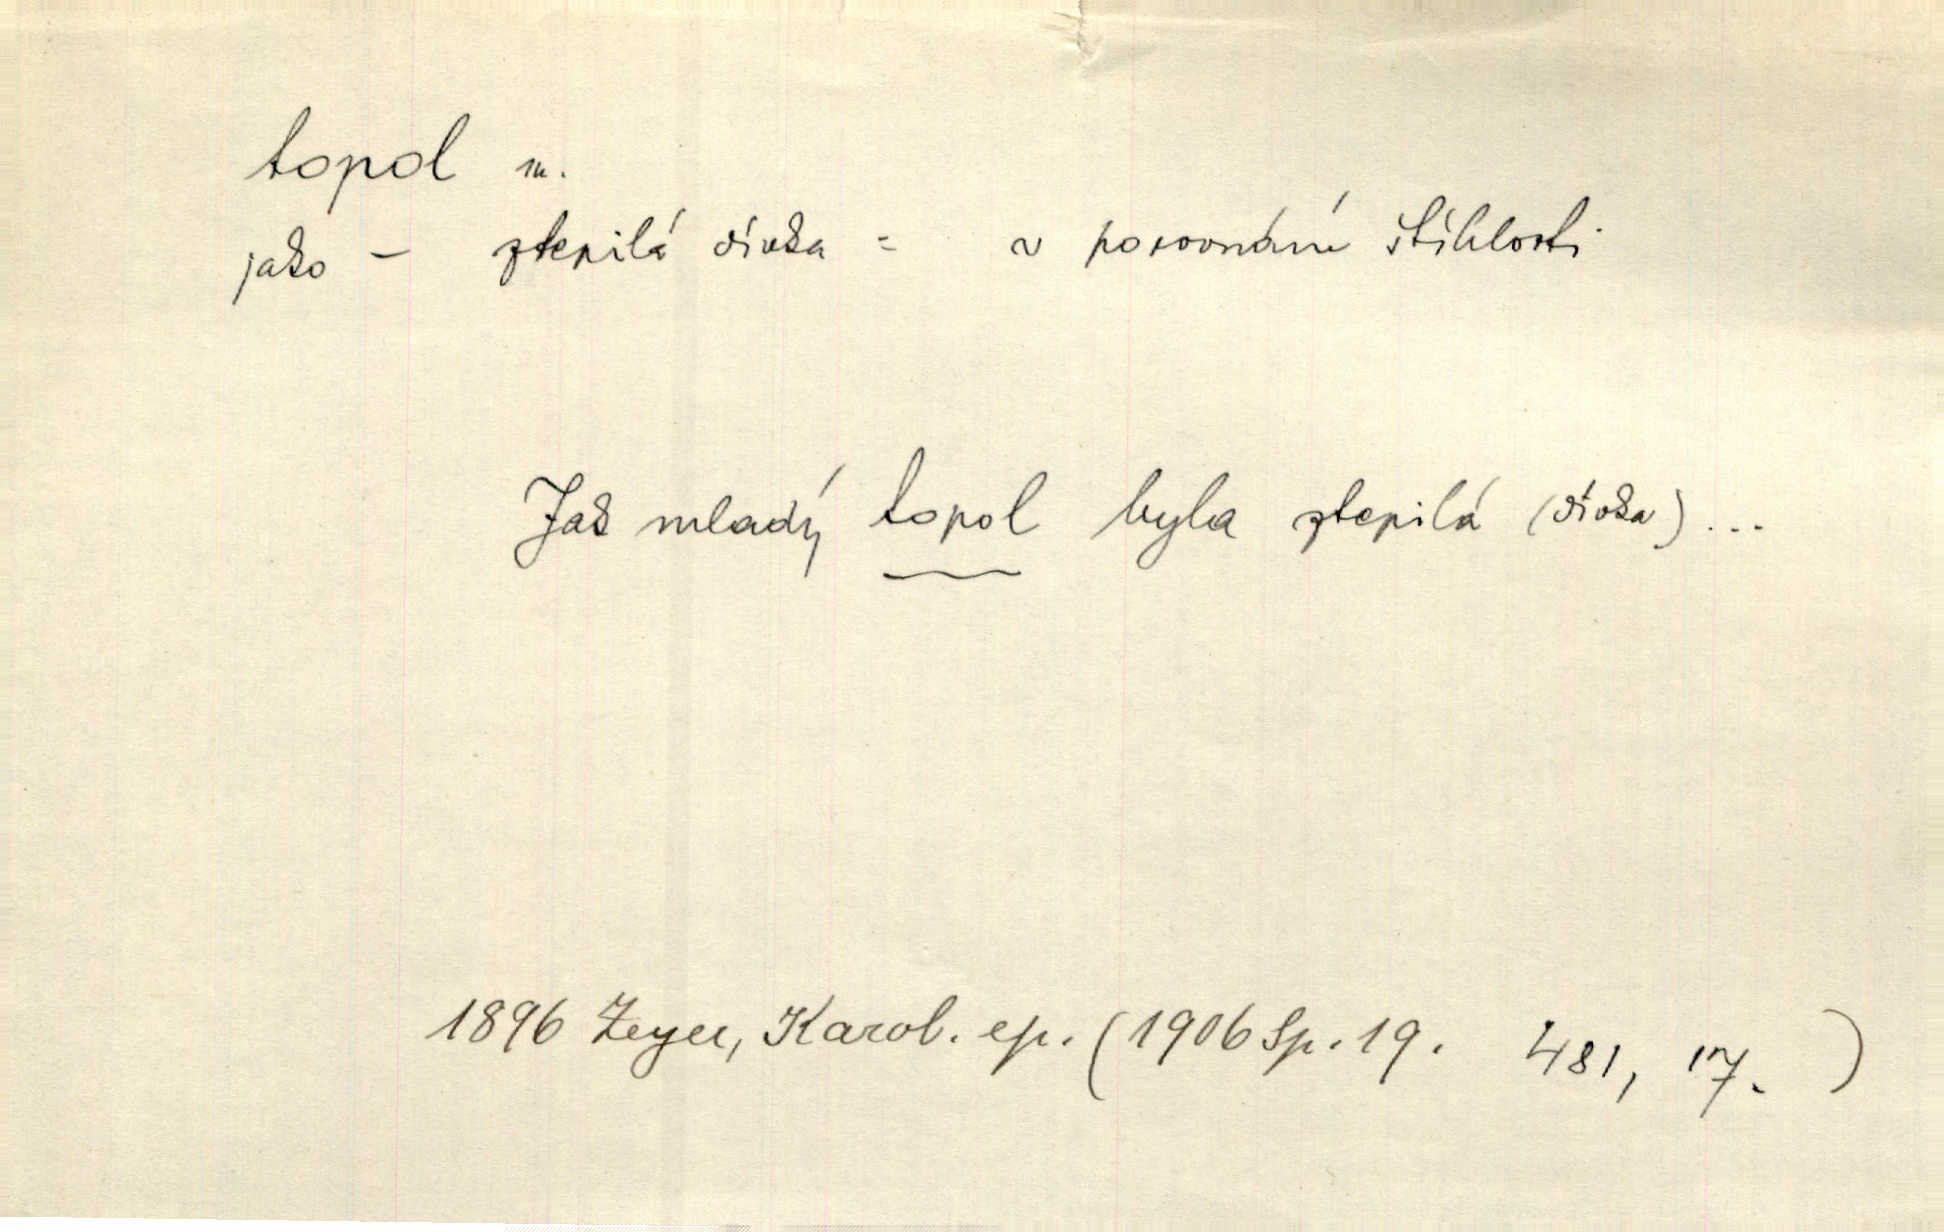 topol m.
jako – ztepilá dívka = v porovnání štíhlosti
Jak mladý topol byla ztepilá (dívka) ...
1896 Zeyer, Karol. ep. (1906 Sp. 19. 481, 17. )